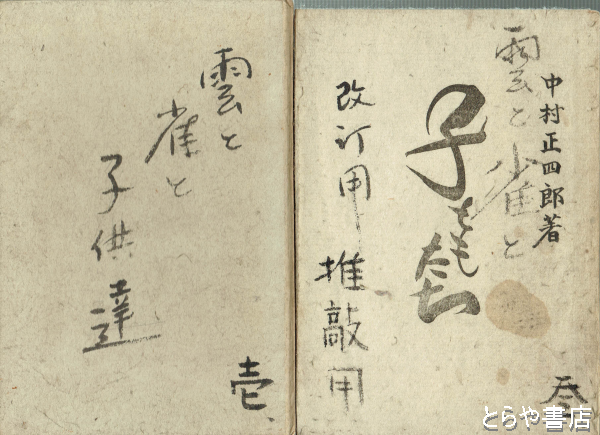 中村正四郎著
雲と雀と
子ともたち
改訂用 推敲用
参
雲と
雀と
子供達
壱
とらや書店